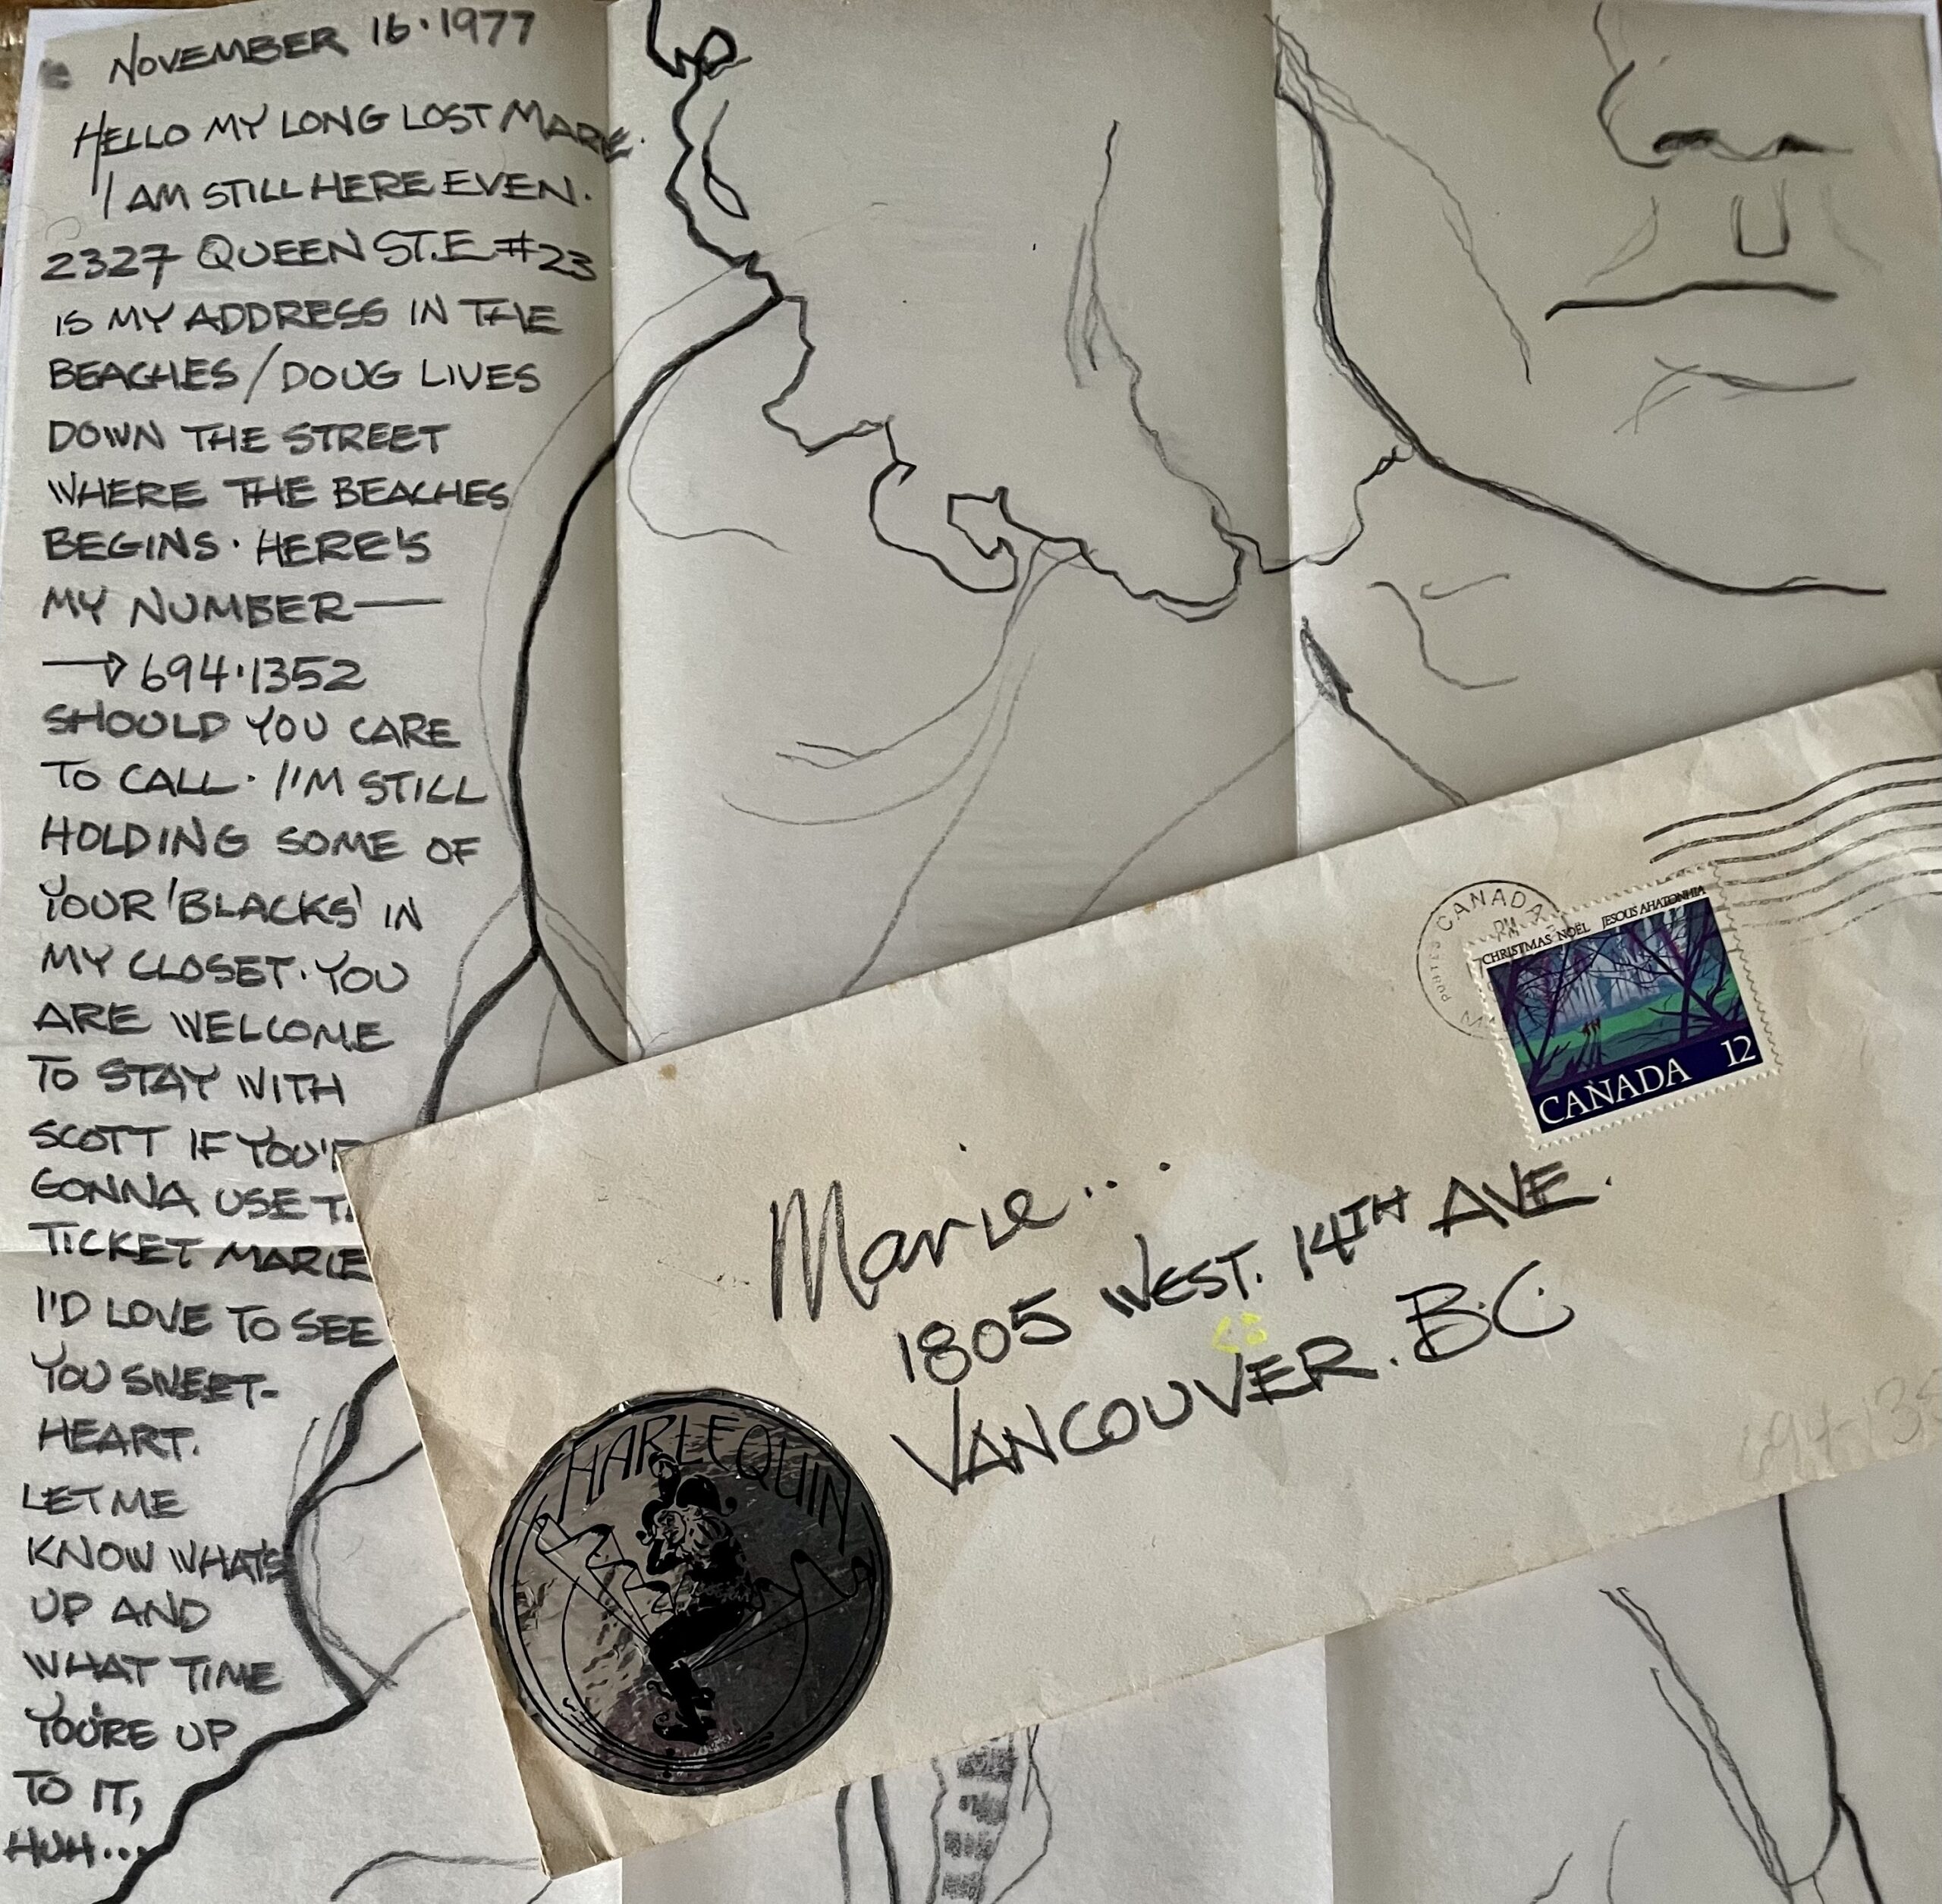 NOVEMBER 16·1977
HELLO MY LONG LOST MARIE.
I AM STILL HERE EVEN.
2327 QUEEN ST. E #23
IS MY ADDRESS IN THE
BEACHES/DOUG LIVES
DOWN THE STREET
WHERE THE BEACHES
BEGINS. HERE'S
MY NUMBER—
→694·1352
SHOULD YOU CARE
TO CALL. I'M STILL
HOLDING SOME OF
YOUR 'BLACKS' IN
MY CLOSET. YOU
ARE WELCOME
TO STAY WITH
SCOTT IF YOU'R
GONNA USE T
TICKET MARIE
I'D LOVE TO SEE
YOU SWEET-
HEART.
LET ME
KNOW WHAT'S
UP AND
WHAT TIME
YOU'RE UP
TO IT,
HUH...
CANADA
PM
POSTES
CHRISTMAS NOËL JESOUS AHATONHIA
CANADA 12
Marie...
1805 WEST. 14TH AVE.
VANCOUVER. B.C.
694-135
HARLEQUIN